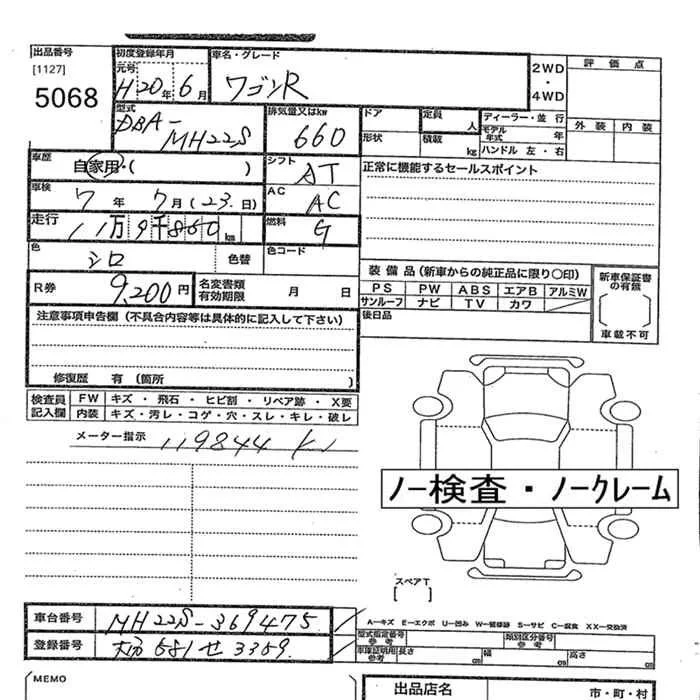 出品番号 初度登録年月 車名・グレード
[1127] 元号 2WD・4WD 評価点
5068 H20年6月 ワゴンR
型式 排気量又はkw ドア 定員 人 ディーラー・並行 外装 内装
DBA-MH22S 660 形状 積載 kg モデル年式 年
ハンドル 左・右
車歴 自家用・( ) シフト AT 正常に機能するセールスポイント
車検 7年7月(23日) AC AC
走行 11万9千860km 燃料 G
色 シロ 色替 色コード
装備品(新車からの純正品に限り○印) 新車保証書の有無
R券 9,200円 名変書類有効期限 月 日 PS PW ABS エアB アルミW
サンルーフ ナビ TV カワ
注意事項申告欄(不具合内容等は具体的に記入して下さい) 後日品 車載不可
修復歴 有(箇所 )
検査員記入欄 FW キズ・飛石・ヒビ割・リペア跡・X要
内装 キズ・汚レ・コゲ・穴・スレ・キレ・破レ
メーター指示 119844 km
ノー検査・ノークレーム
スペアT
[ ]
車台番号 MH22S-369475 A-キズ E-エクボ U-凹み W-補修跡 S-サビ C-腐食 XX-交換済
型式指定番号参考 類別区分番号参考
登録番号 581 せ 3359 車庫証明用参考 長さ cm 幅 cm 高さ cm
MEMO 出品店名 市・町・村